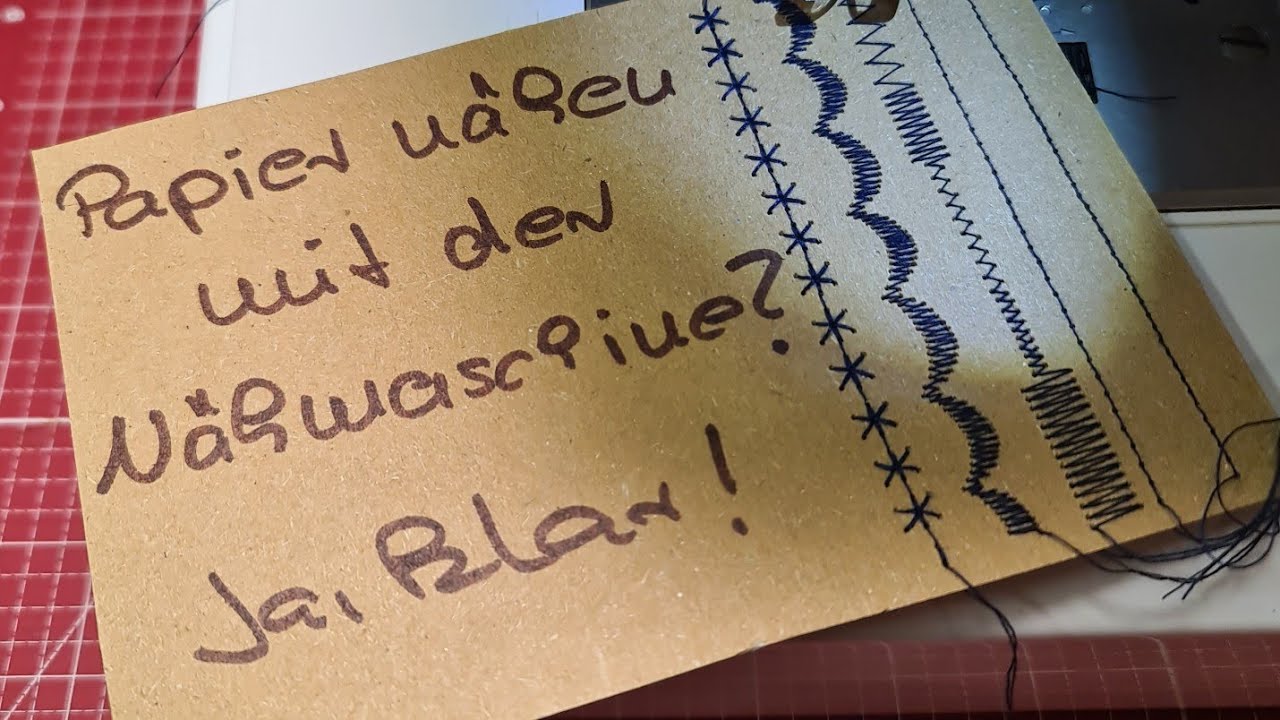 Papier nähen
mit der
Nähmaschine?
Ja, klar!